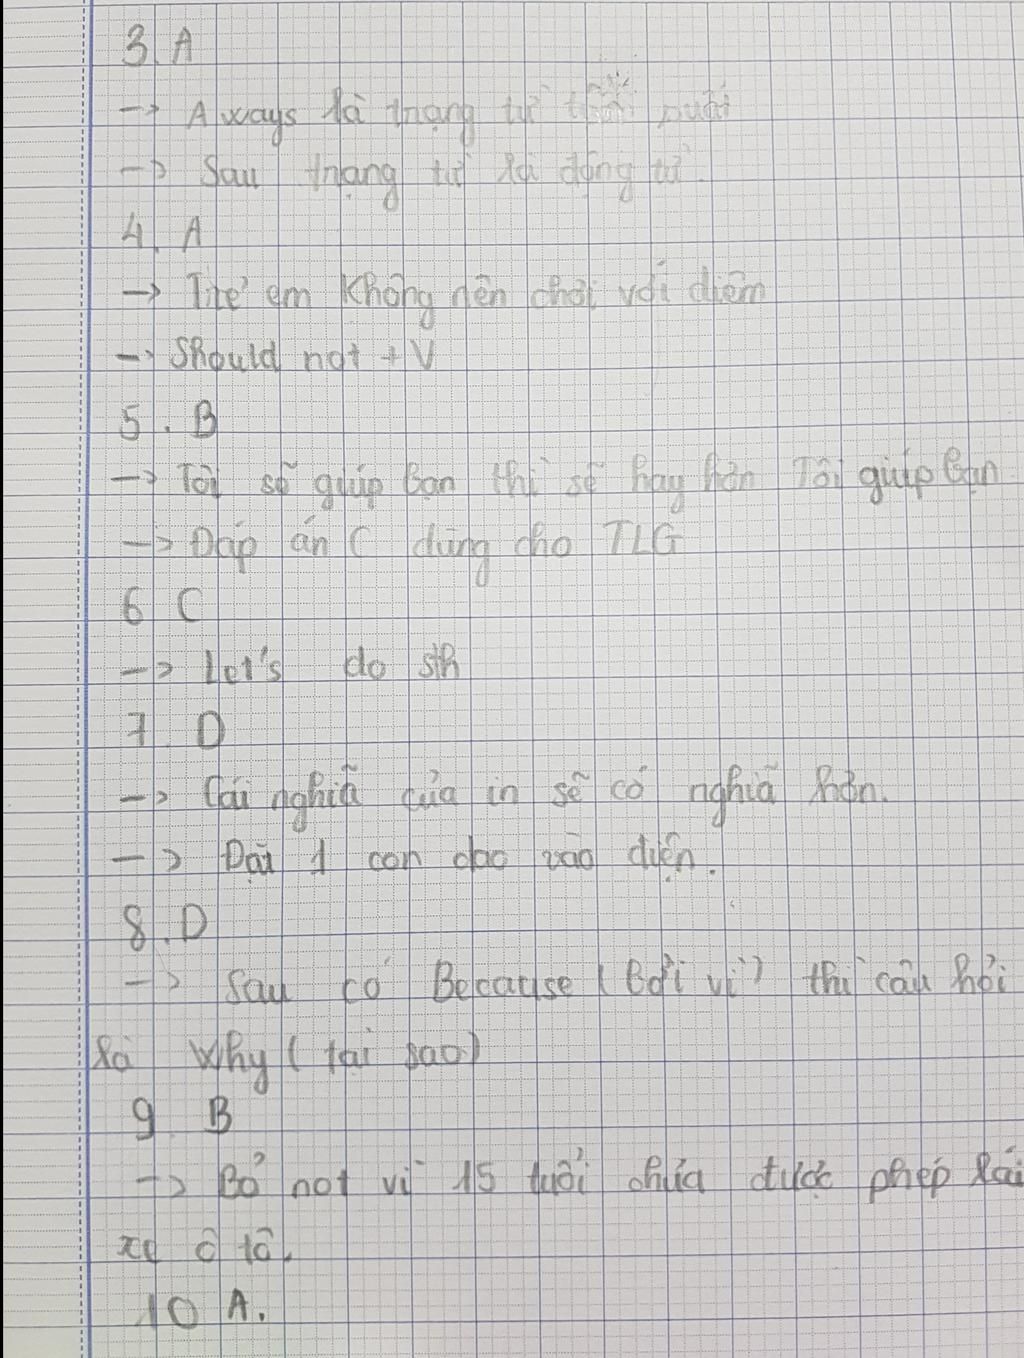 3. A
-> Always là trạng từ tần suất
-> Sau trạng từ là động từ.
4. A
-> Trẻ em không nên chơi với diêm
-> Should not + V
5. B
-> Tôi sẽ giúp bạn thì sẽ hay hơn Tôi giúp bạn
-> Đáp án C dùng cho TLG
6 C
-> Let's do sth
7. D
-> Cái nghĩa của in sẽ có nghĩa hơn.
-> 1 con dao vào điện.
8. D
-> Sau có Because (bởi vì) thì câu hỏi
là Why (tại sao)
9 B
-> Bỏ not vì 15 tuổi chưa được phép lái
xe ô tô.
10 A.